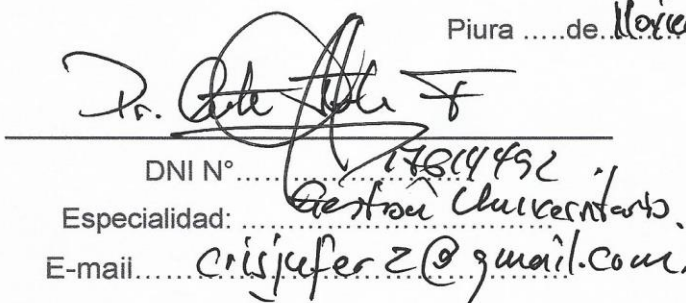 Piura .....de.
Dr.
DNI N°......17614492
Especialidad: Gestion Universitario.
E-mail......crisjufer2@gmail.com.